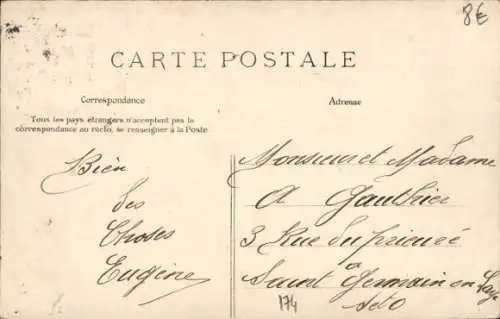 8€
CARTE POSTALE
Correspondance
Tous les pays étrangers n'acceptent pas la
correspondance au recto, se renseigner à la Poste
Bien
des
Choses
Eugène
Adresse
Monsieur et Madame
A Gauthier
3 Rue du prieuré
à
Saint Germain en Laye
Set O
174